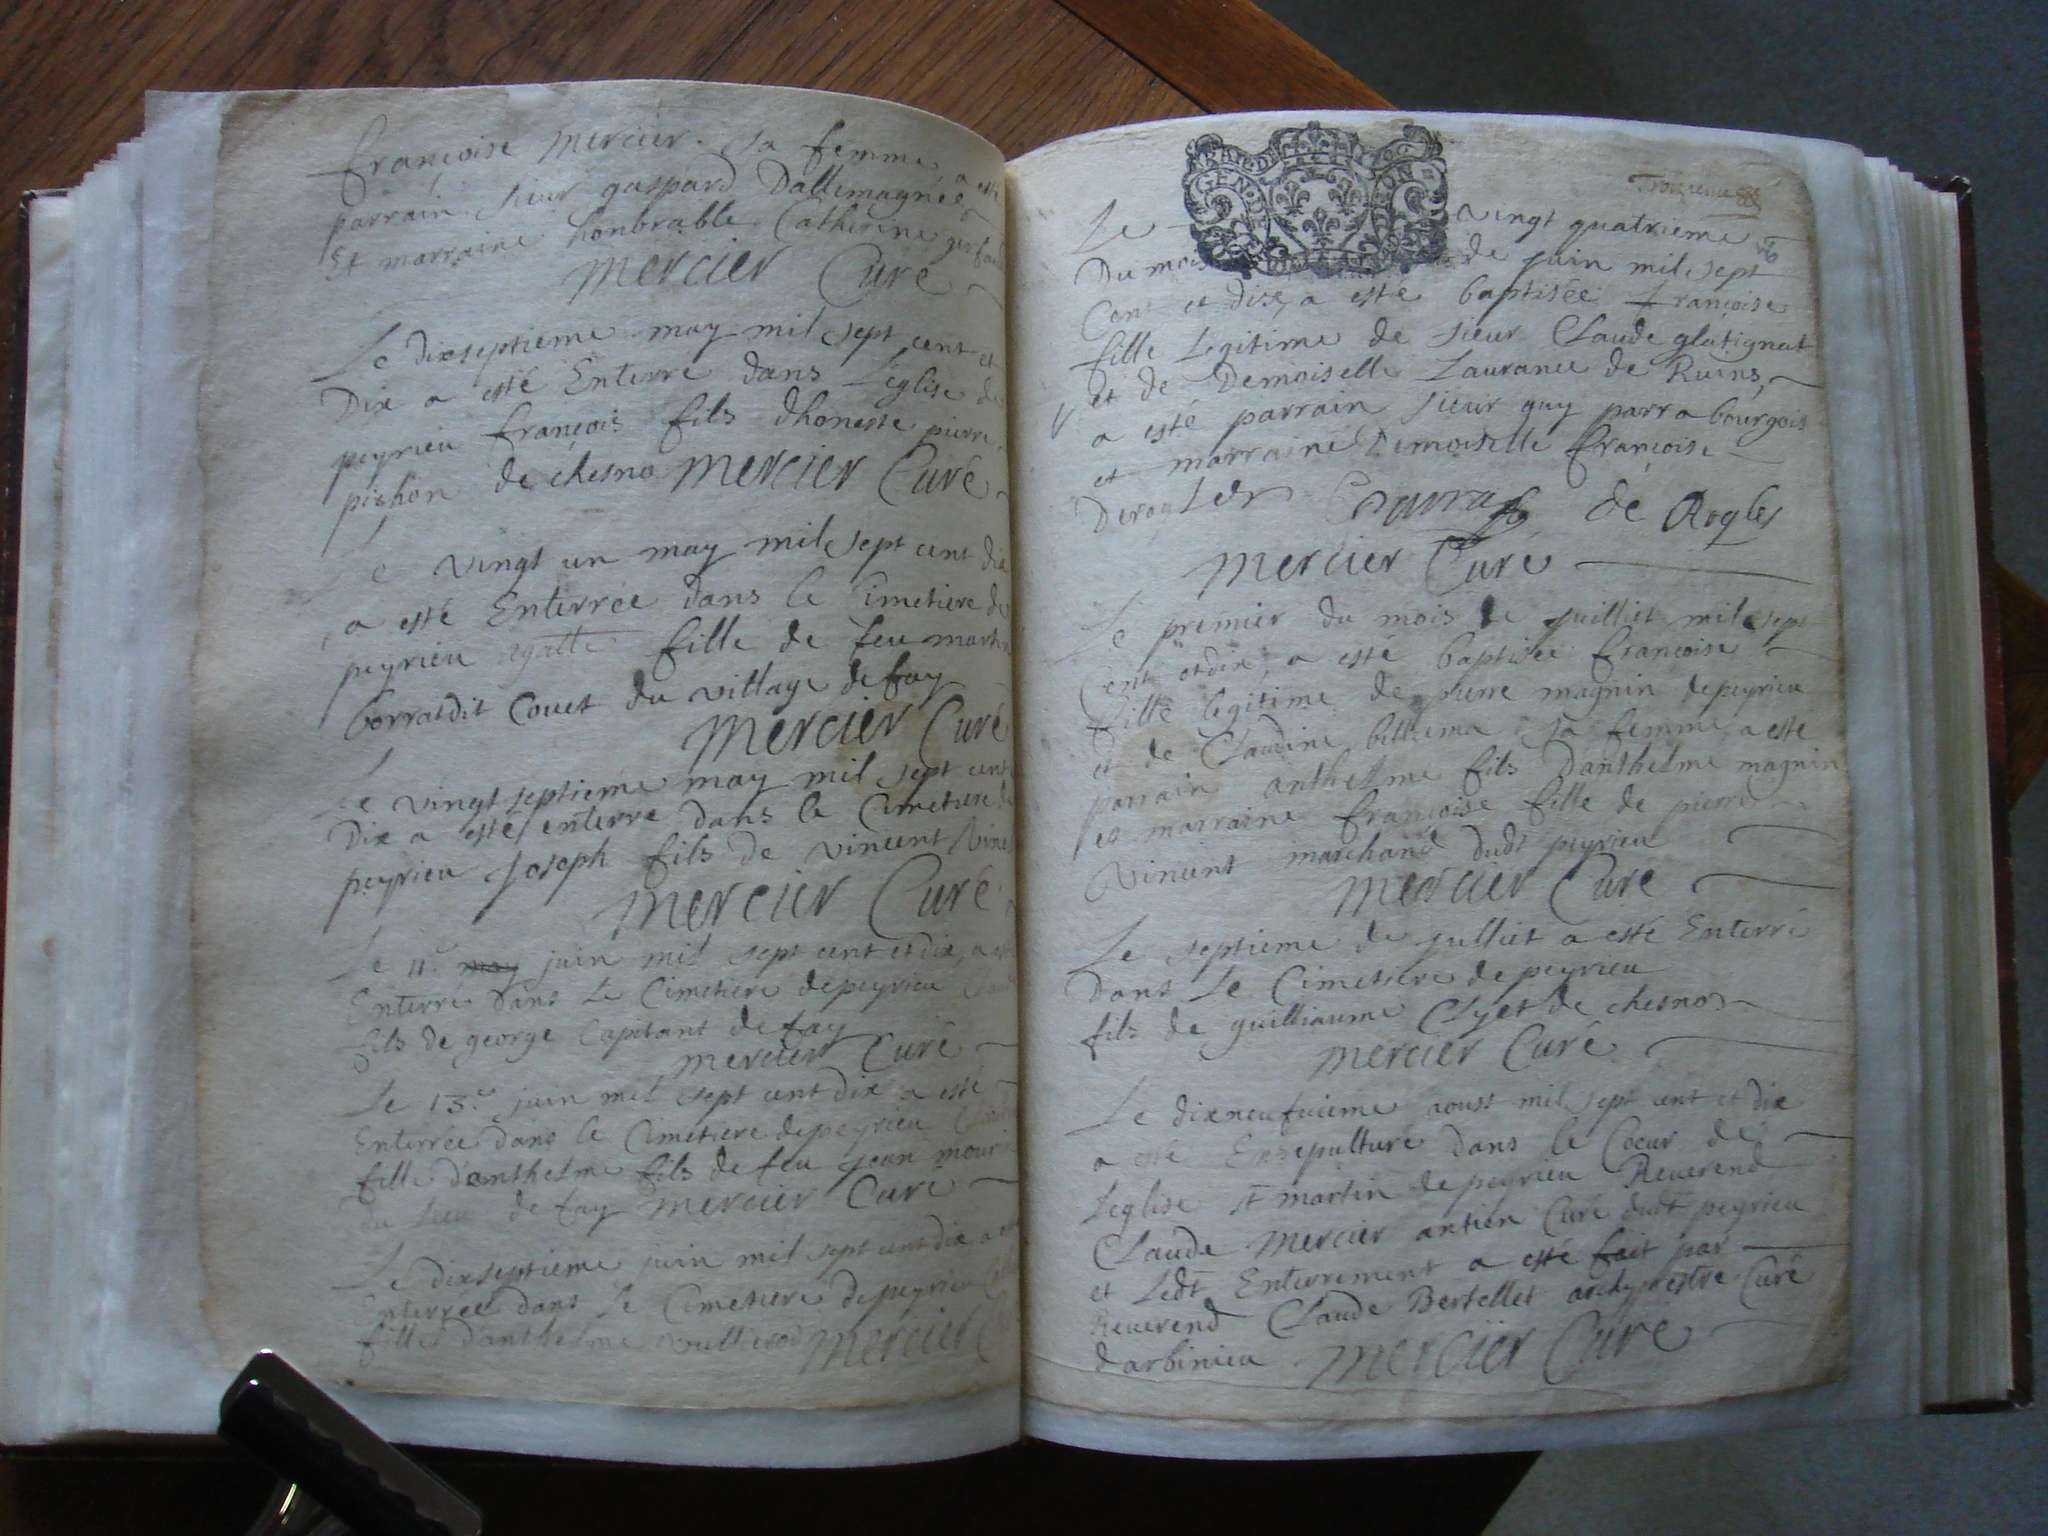 françoise Mercier sa femme a esté
parrain sieur gaspard Dallemagne
Et marraine honorable Catherine
Mercier Curé
Le dixseptieme may mil sept cent et
Dix a esté Enterré dans Léglise de
peyrieu françois fils dhoneste pierre
pichon de chesno Mercier Curé
Le vingt un may mil sept cent dix
a esté Enterrée dans le Cimetiere de
peyrieu agatte fille de feu martin
borrat dit Couet du village de fay
Mercier Curé
Le vingt septieme may mil sept cent
Dix a esté enterré dans le Cimetiere de
peyrieu Joseph fils de vincent
Mercier Curé
Le 11e may juin mil sept cent et dix, a esté
Enterré dans Le Cimetiere de peyrieu
fils de george Capitant de fay
Mercier Curé
Le 13e juin mil sept cent dix a esté
Enterrée dans le Cimetiere de peyrieu
fille danthelme fils de feu jean
du Lieu de fay Mercier Curé
Le dixseptieme juin mil sept cent dix a esté
Enterrée dans Le Cimetiere de peyrieu
fille danthelme Mercier
Troizieme
GEN ON
Le vingt quatrieme
Du mois de juin mil sept
Cent et dix, a esté baptisée françoise
fille Legitime de sieur Claude glatignat
et de Demoiselle Laurance de Ruins,
a esté parrain sieur guy parra bourgois
et marraine Demoiselle françoise
Parra de Rogles
Mercier Curé
Le premier du mois de juilliet mil sept
cent et dix, a esté baptisée françoise
fille legitime de pierre magnin de peyrieu
et de Claudine sa femme, a esté
parrain anthelme fils Danthelme magnin
et marraine françoise fille de pierre
Vincent marchand dudt peyrieu
Mercier Curé
Le septieme de julliet a esté Enterré
Dans Le Cimetiere de peyrieu
fils de guilliaume Clyet de chesno
Mercier Curé
Le dixneufuieme aoust mil sept cent et dix
a esté Ensepulturé dans le Coeur de
Leglise St martin de peyrieu Reuerend
Claude Mercier antien Curé dudt peyrieu
et Ledt Enterrement a esté fait par
Reuerend Claude Bertellet archyprestre Curé
darbinieu Mercier Curé